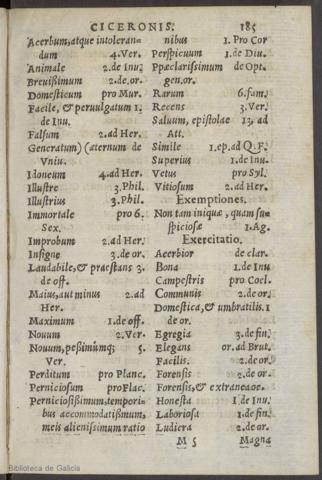 CICERONIS. 185
Acerbum, atque intoleran-
dum 4. Ver.
Animale 2. de Inu.
Breuißimum 2. de or.
Domesticum pro Mur.
Facile, & peruulgatum 1.
de Inu.
Falsum 2. ad Her.
Generatum) (æternum de
Vniu.
Idoneum 4. ad Her.
Illustre 3. Phil.
Illustrius 3. Phil.
Immortale pro 6.
Sex.
Improbum 2. ad Her.
Insigne 3. de or.
Laudabile, & præstans 3.
de off.
Maius, aut minus 2. ad
Her.
Maximum 1. de off.
Nouum 2. Ver.
Nouum, peßimúmq; 5.
Ver.
Perditum pro Planc.
Perniciosum pro Flac.
Perniciosißimum, tempori-
bus accommodatißimum,
meis alienissimum ratio
nibus 1. Pro Cor
Perspicuum 1. de Diu.
Ppæclarissimum de Opt.
gen. or.
Rarum 6. fam.
Recens 3. Ver.
Saluum, epistolæ 13. ad
Att.
Simile 1. ep. ad Q. F.
Superius 1. de Inu.
Vetus pro Syl.
Vitiosum 2. ad Her.
Exemptiones.
Non tam iniquæ, quam su-
spiciosæ 1. Ag.
Exercitatio.
Acerbior de clar.
Bona 1. de Inu
Campestris pro Coel.
Communis 2. de or.
Domestica, & umbratilis. 1
de or.
Egregia 3. de fin.
Elegans or. ad Brut.
Facilis. 2. de or.
Forensis 2. de or.
Forensis, & extraneæ.
Honesta 1. de Inu.
Laboriosa 1. de fin.
Ludicra 2. de or.
M 5 Magna
Biblioteca de Galicia